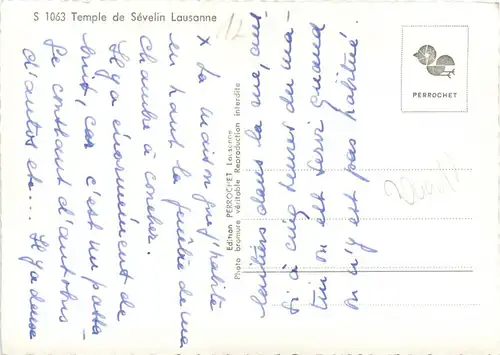 S 1063 Temple de Sévelin Lausanne
12
PERROCHET
Edition PERROCHET Lausanne
Photo bromure véritable Reproduction interdite
x La maison que j'habite
en haut la fenêtre de ma
chambre à coucher.
Il y a énormément de
bruit, car c'est un passa-
ge constant d'autobus
d'autos etc... Il y a deux
laitiers dans la rue, aus-
si à cinq heures du ma-
tin on est servi quand
on n'y est pas habitué.